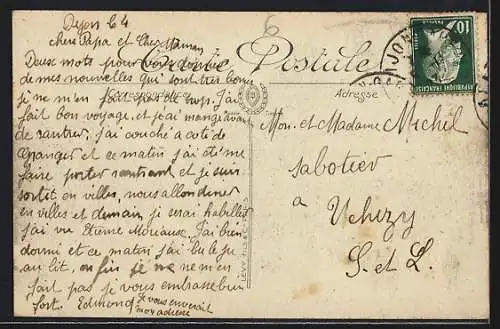 Dijon le 4
chers Papa et Chère Maman
Carte Postale
Deux mots pour vous donner
de mes nouvelles qui sont très bonnes
Correspondance
Adresse
je ne m'en fait pas trop. J'ai
fait bon voyage, et j'ai mangé avant
de rentrer, j'ai couché a coté de
Granger et ce matin j'ai été me
faire porter rentrant et je suis
sortit en villes, nous allon diner
en villes et demain je serai habiller
j'ai vu Etienne Moriaux. J'ai bien
dormi et ce matin j'ai bu le jus
au lit, enfin je ne m'en
fait pas je vous embrasse bien
fort. Edmond
je vous enverait
mon adresse
Mon. et Madame Michel
sabotier
a
Uchizy
S. et L.
LEVY
10
POSTES
REPUBLIQUE FRANÇAISE
DIJON-GARE
6